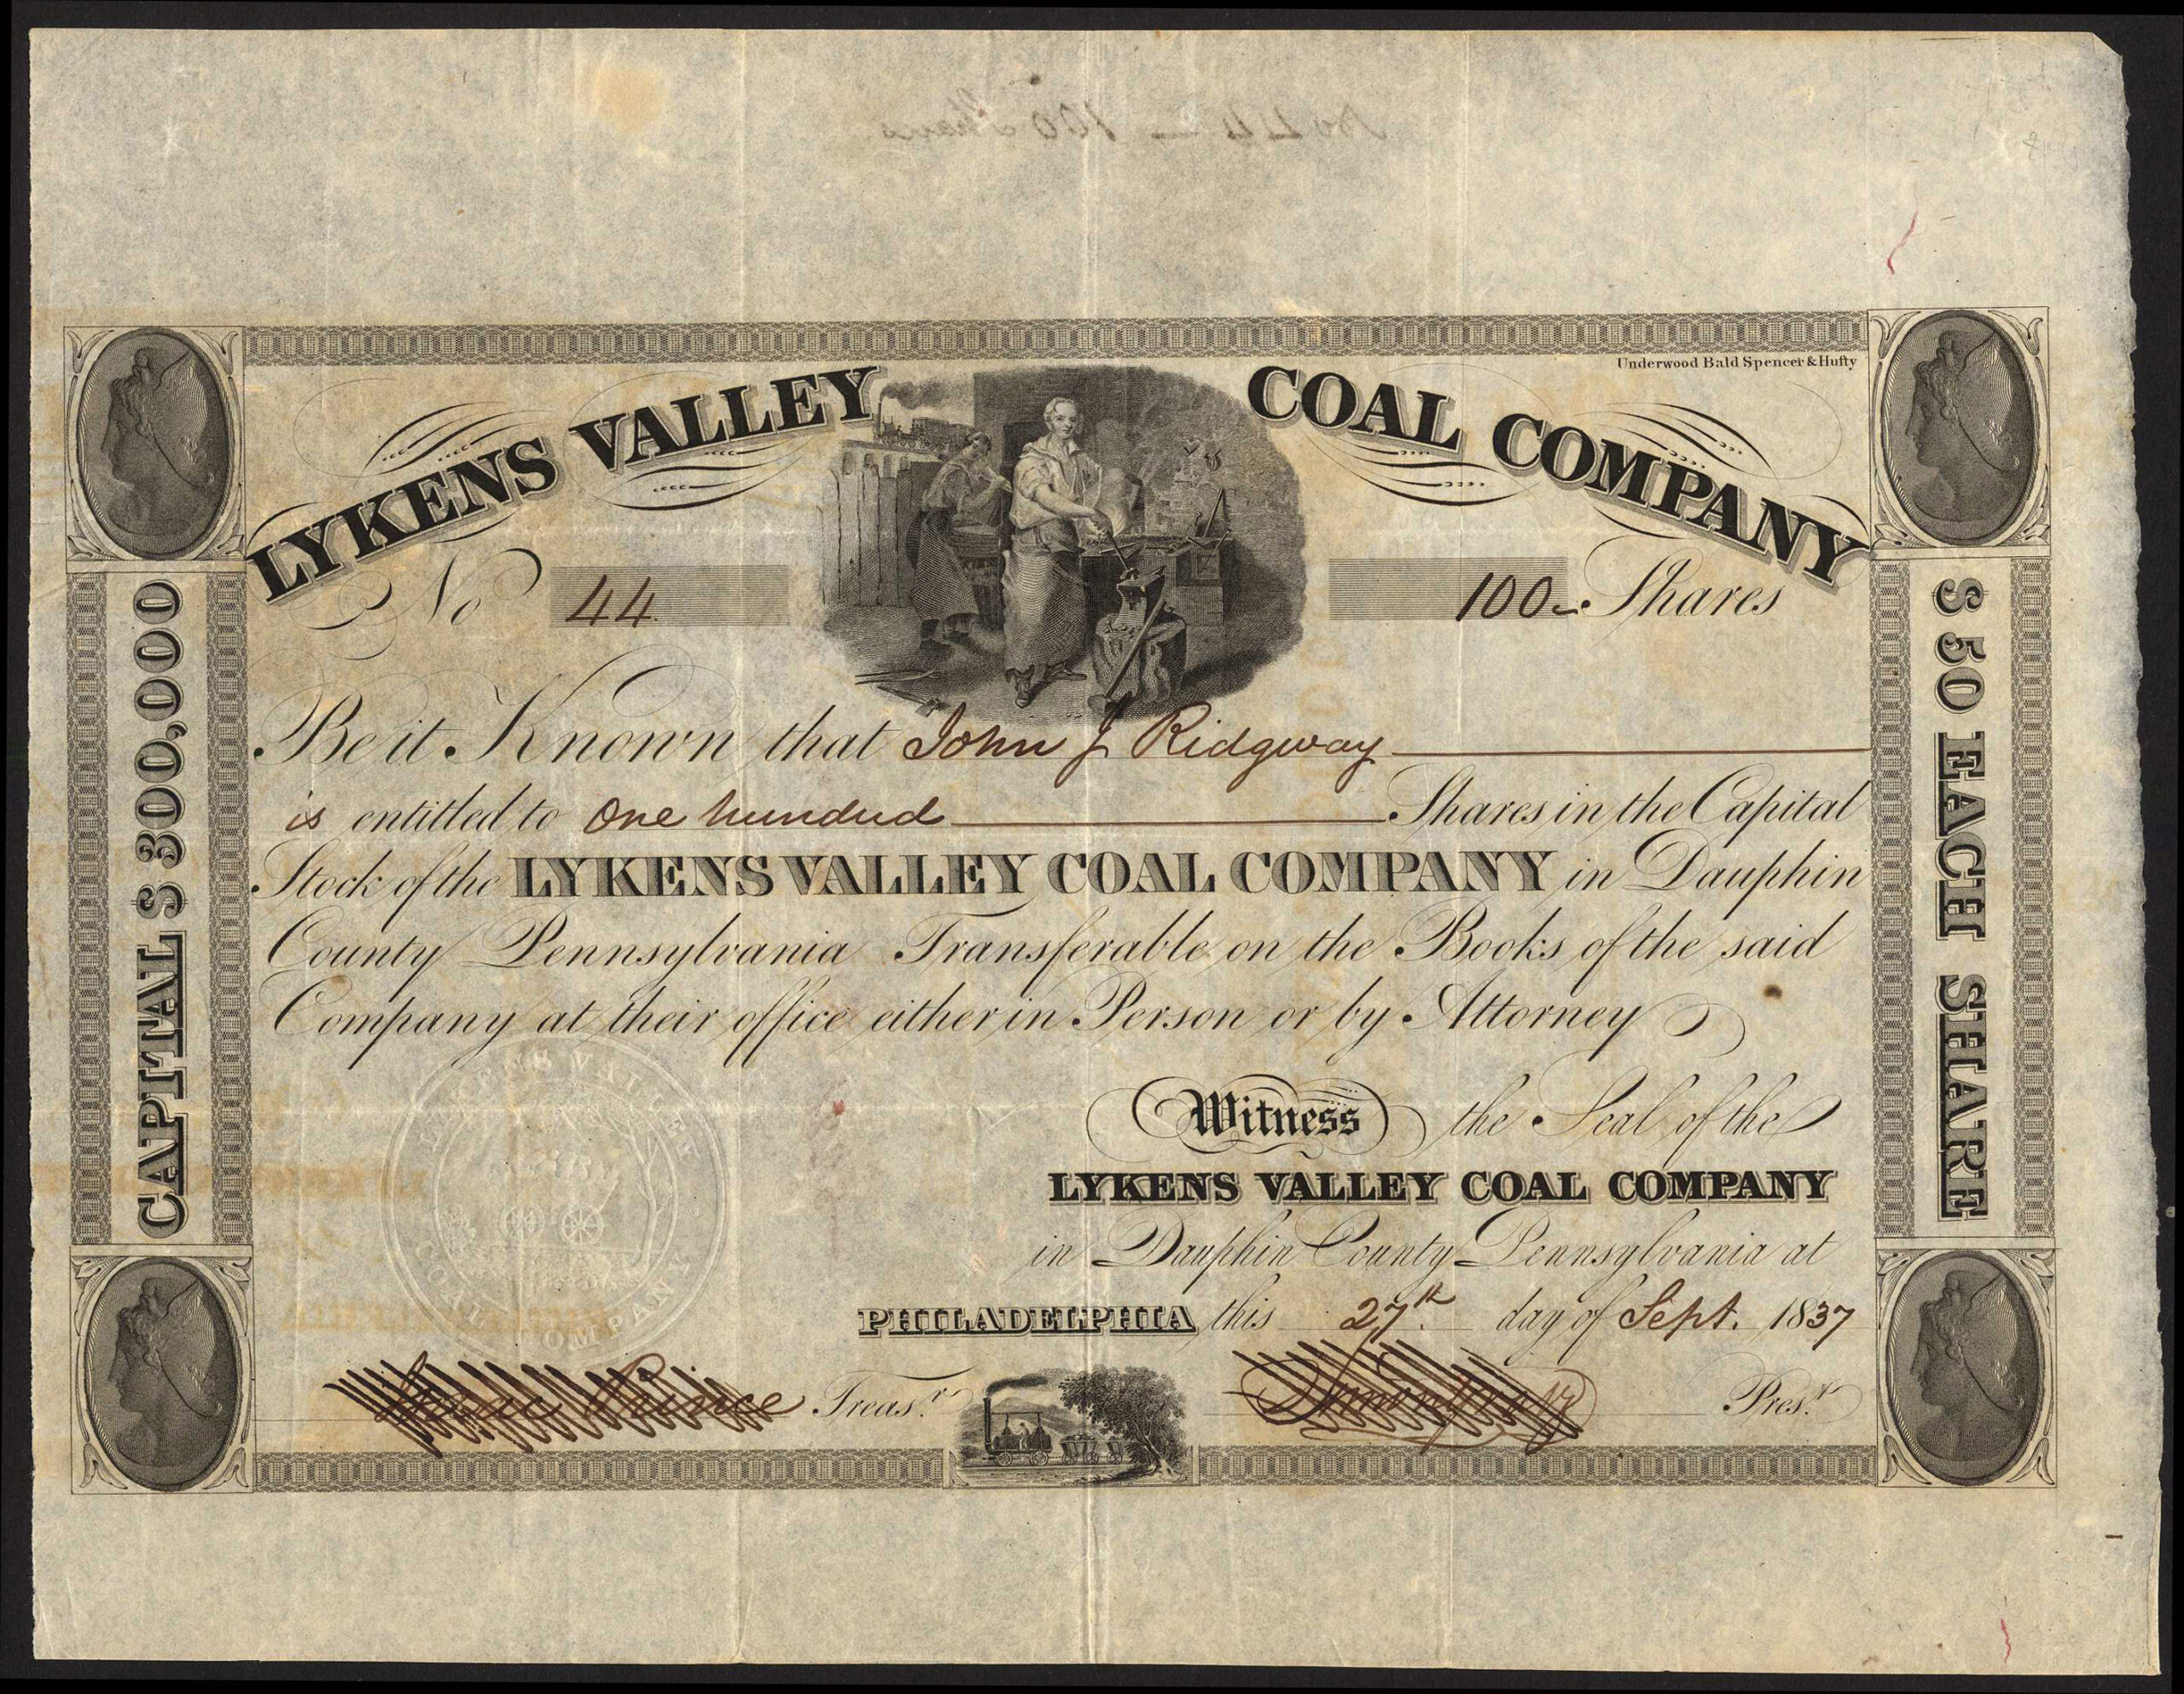 No 44 — 100 Shares
Underwood Bald Spencer & Hufty
LYKENS VALLEY COAL COMPANY
No 44 100 Shares
Be it Known that John J Ridgway
is entitled to One hundred Shares in the Capital
Stock of the LYKENS VALLEY COAL COMPANY in Dauphin
County Pennsylvania Transferable on the Books of the said
Company at their office either in Person or by Attorney
Witness the Seal of the
LYKENS VALLEY COAL COMPANY
in Dauphin County Pennsylvania at
PHILADELPHIA this 27th day of Sept. 1837
Prince Treasr
Presr
CAPITAL $300,000
$50 EACH SHARE
LYKENS VALLEY
COAL COMPANY